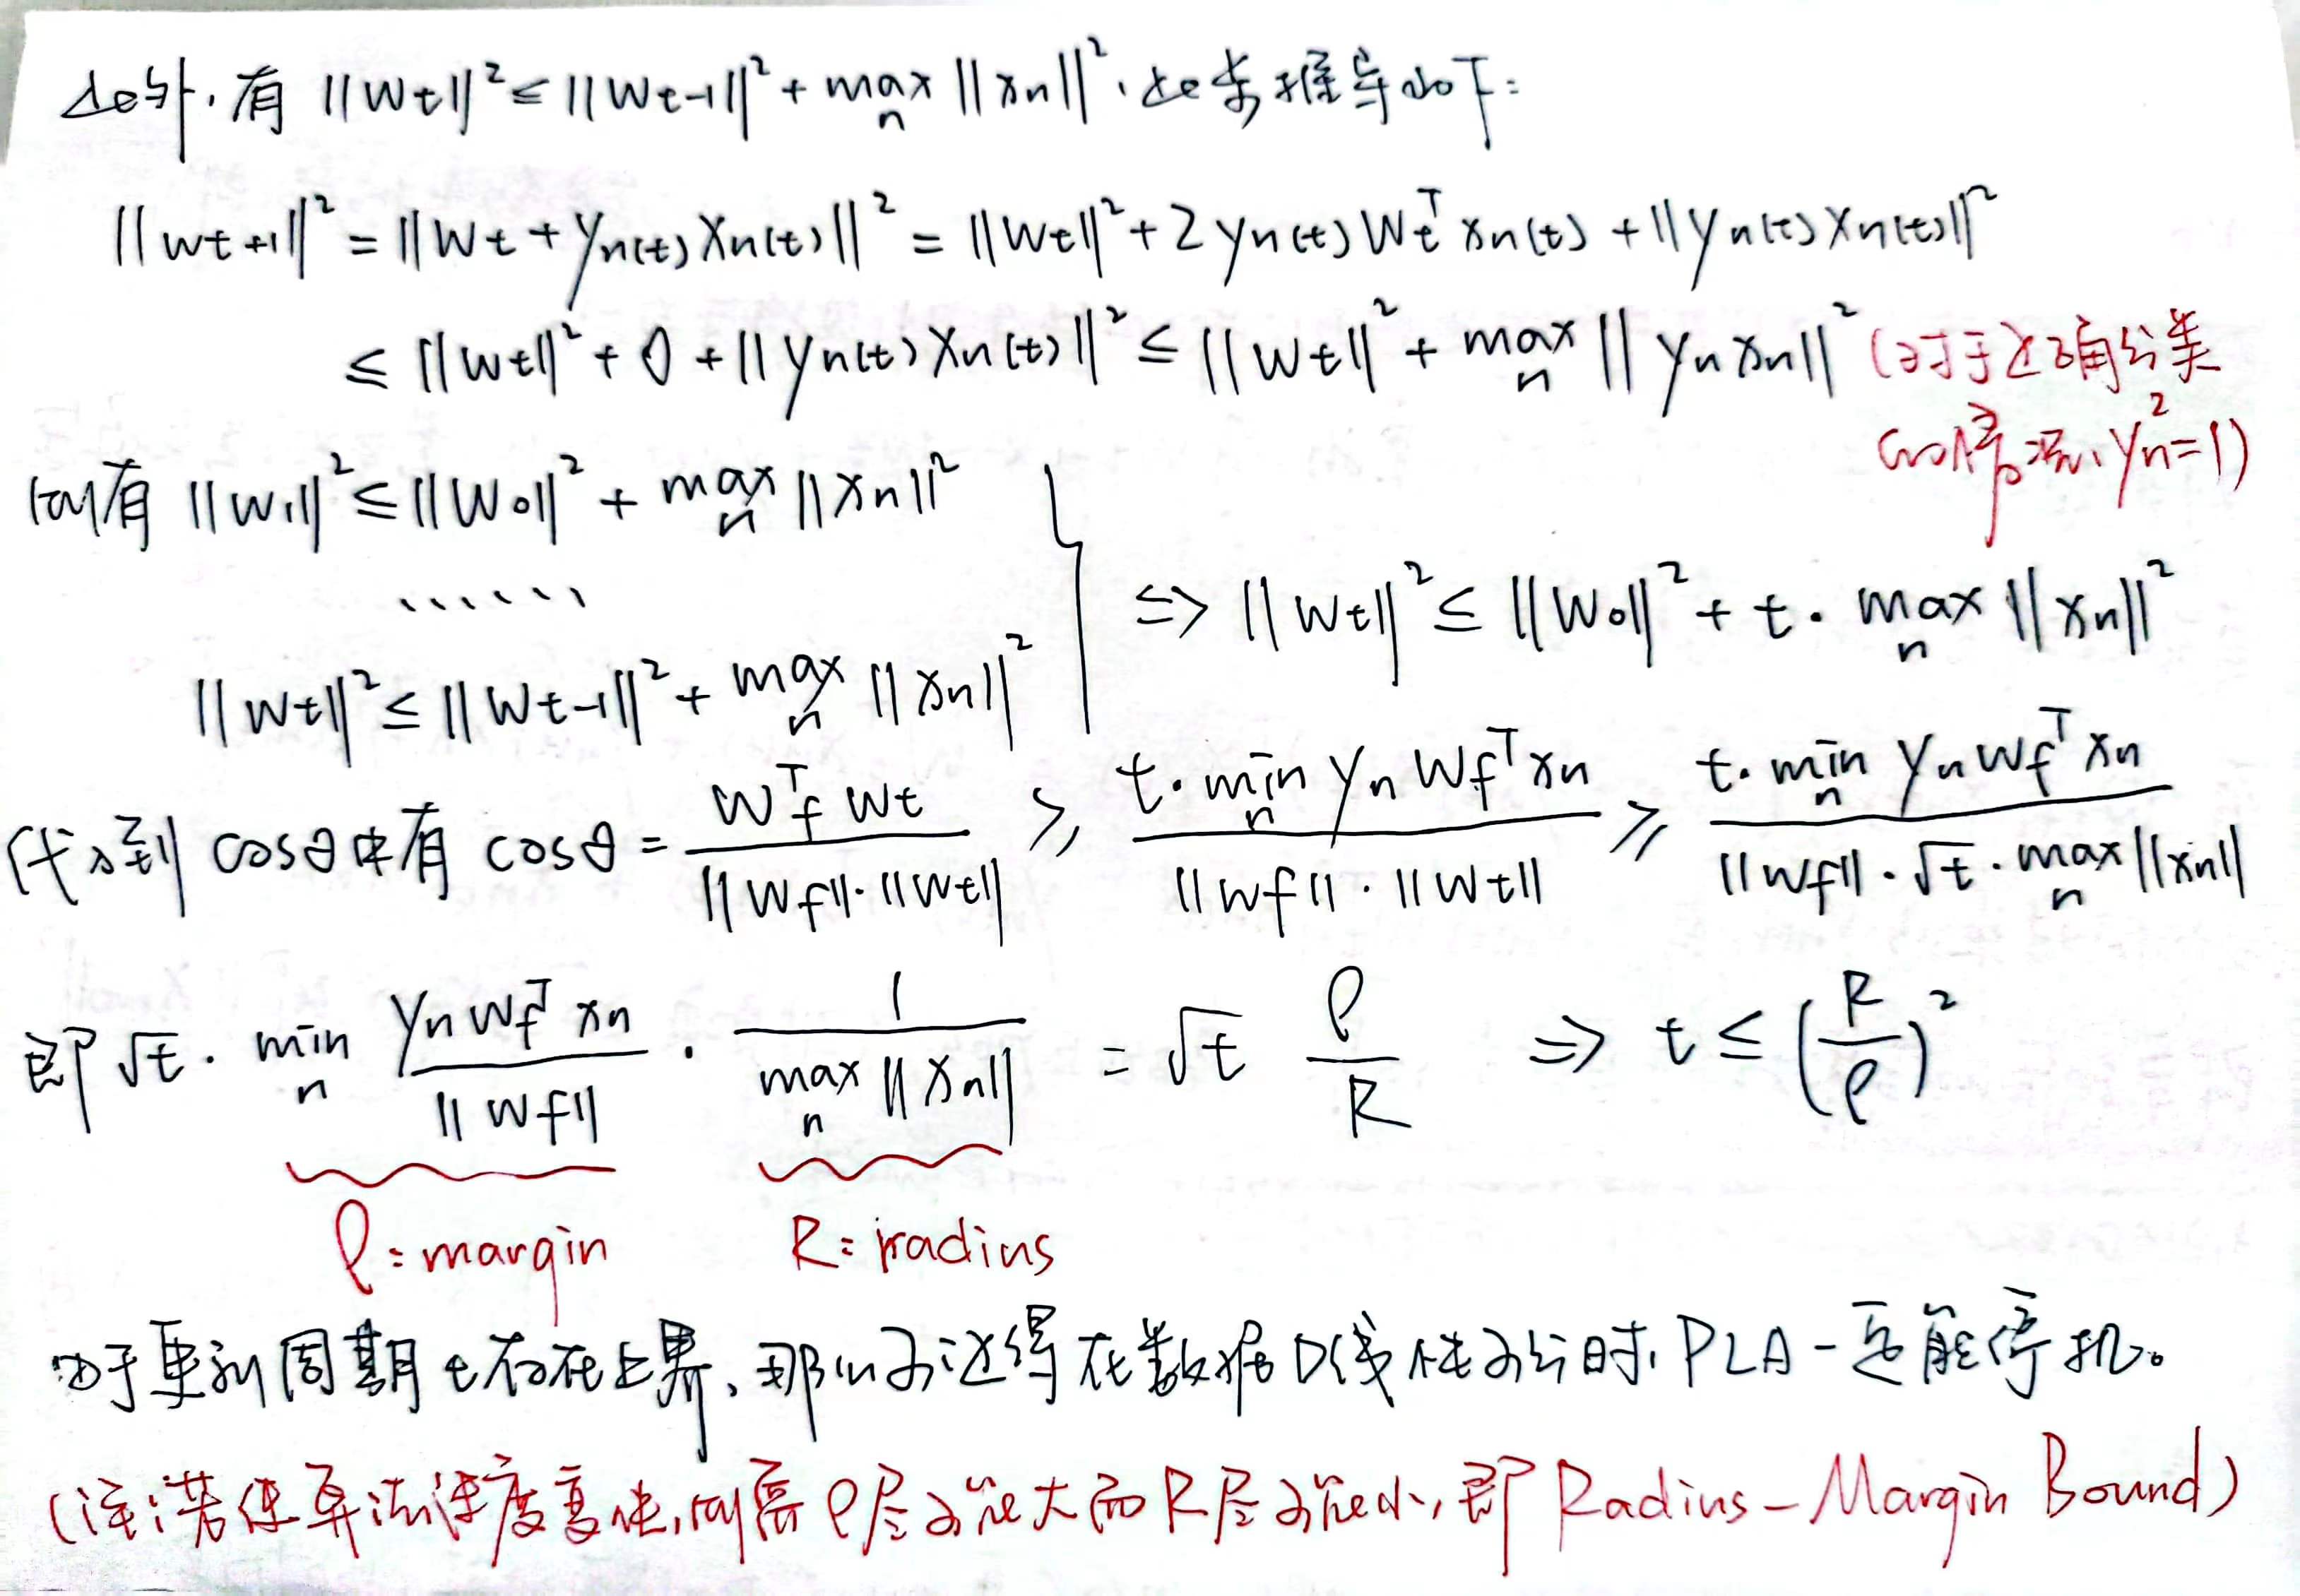 此外,有 ||Wt||² ≤ ||Wt-1||² + max_n ||xn||²,此步推导如下:
||wt+1||² = ||Wt + yn(t) Xn(t)||² = ||Wt||² + 2 yn(t) Wt^T xn(t) + ||yn(t) Xn(t)||²
≤ ||wt||² + 0 + ||yn(t) Xn(t)||² ≤ ||wt||² + max_n ||yn xn||² (对于正确分类
的情况, yn²=1)
则有 ||w1||² ≤ ||W0||² + max_n ||xn||²
······
||wt||² ≤ ||Wt-1||² + max_n ||xn||²
⇔ ||wt||² ≤ ||W0||² + t · max_n ||xn||²
代入到 cosθ中有 cosθ = Wf^T Wt / (||Wf||·||Wt||) ≥ t·min_n yn Wf^T xn / (||wf||·||Wt||) ≥ t·min_n yn wf^T xn / (||wf||·√t·max_n ||xn||)
即 √t · min_n (yn wf^T xn / ||wf||) · 1 / (max_n ||xn||) = √t ρ/R ⇒ t ≤ (R/ρ)²
ρ: margin R: radius
由于更新周期t存在上界,那么可证得在数据D线性可分时,PLA一定能停机。
(注:若使算法速度变快,则需ρ尽可能大而R尽可能小,即 Radius-Margin Bound)